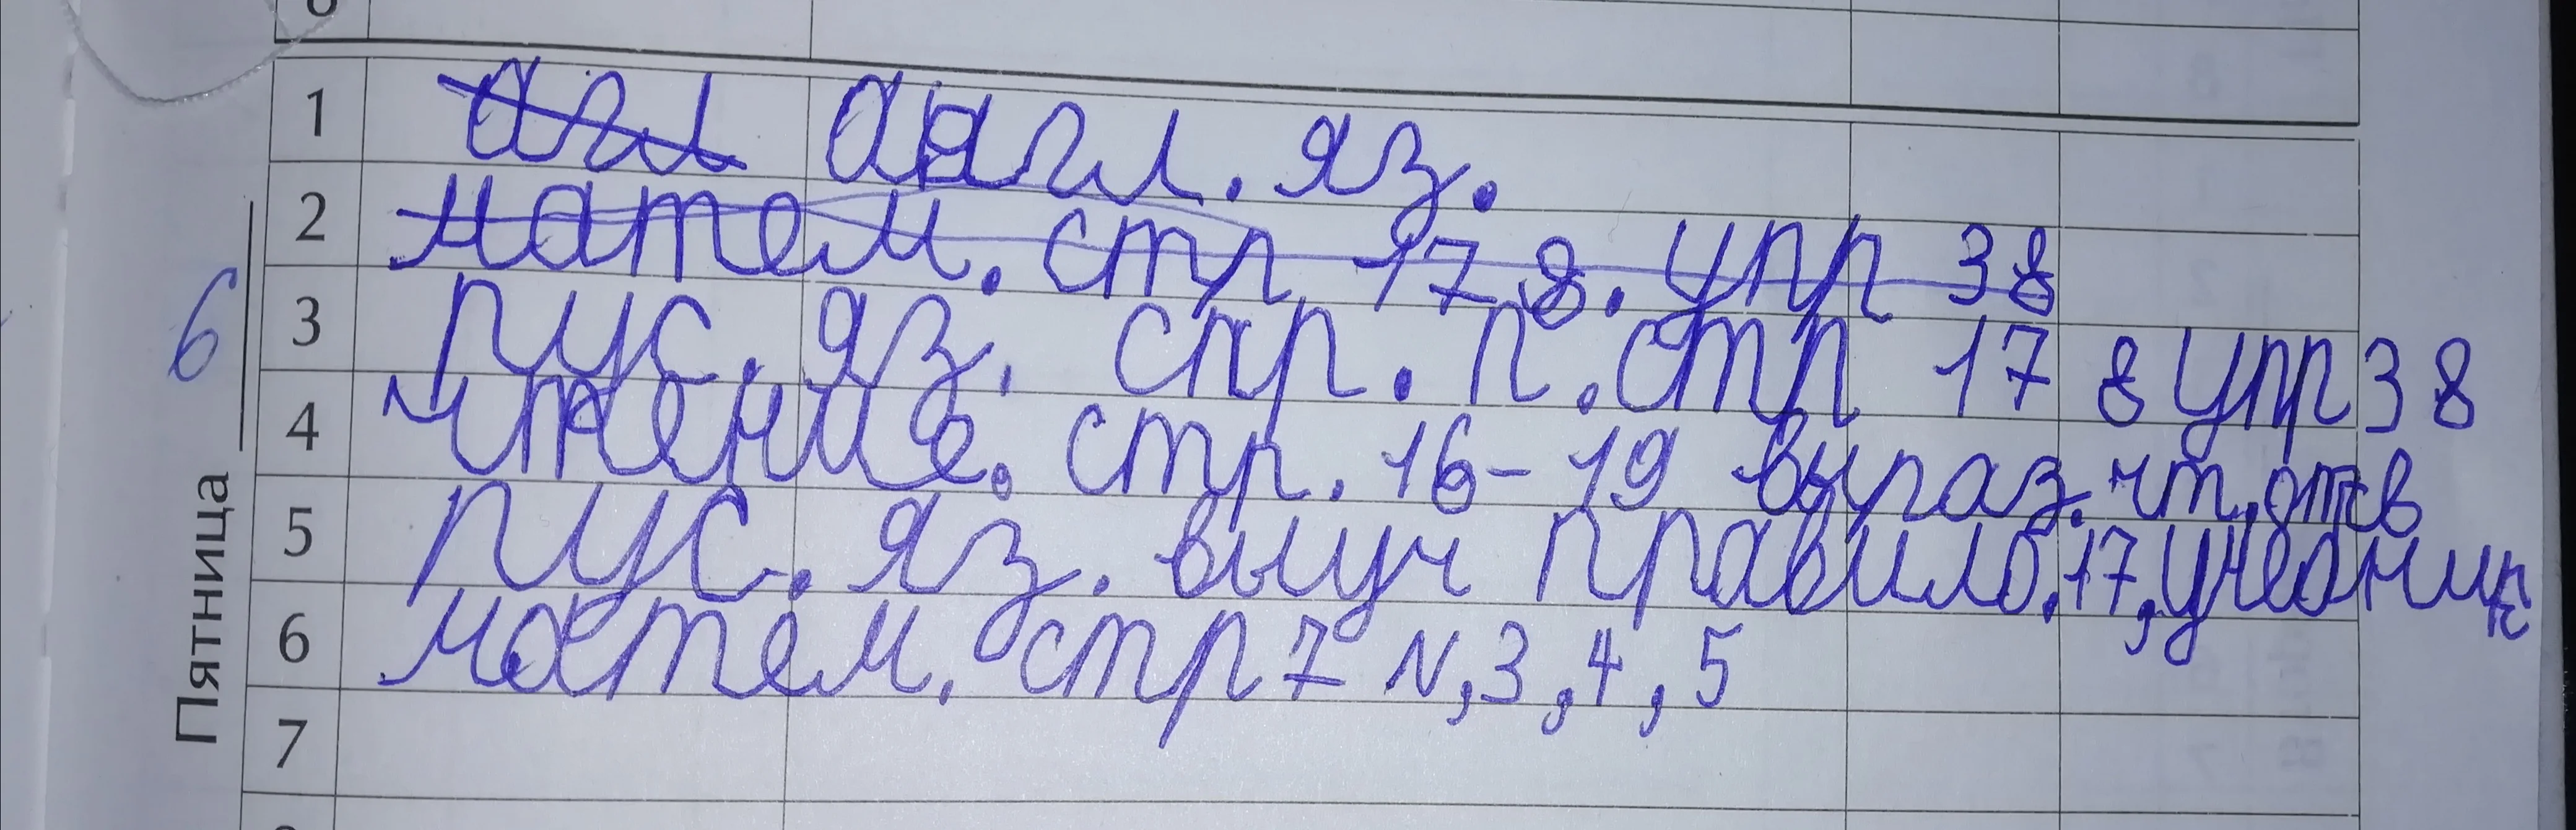 Пятница 6
1 агл англ. яз.
2 матем. стр 178. упр 38
3 рус. яз. спр. п. стр 178 упр 38
4 чтение. стр. 16-19 выраз. чт. отв
5 рус. яз. выуч правило. 17, учебник
6 матем. стр 7 N, 3, 4, 5
7